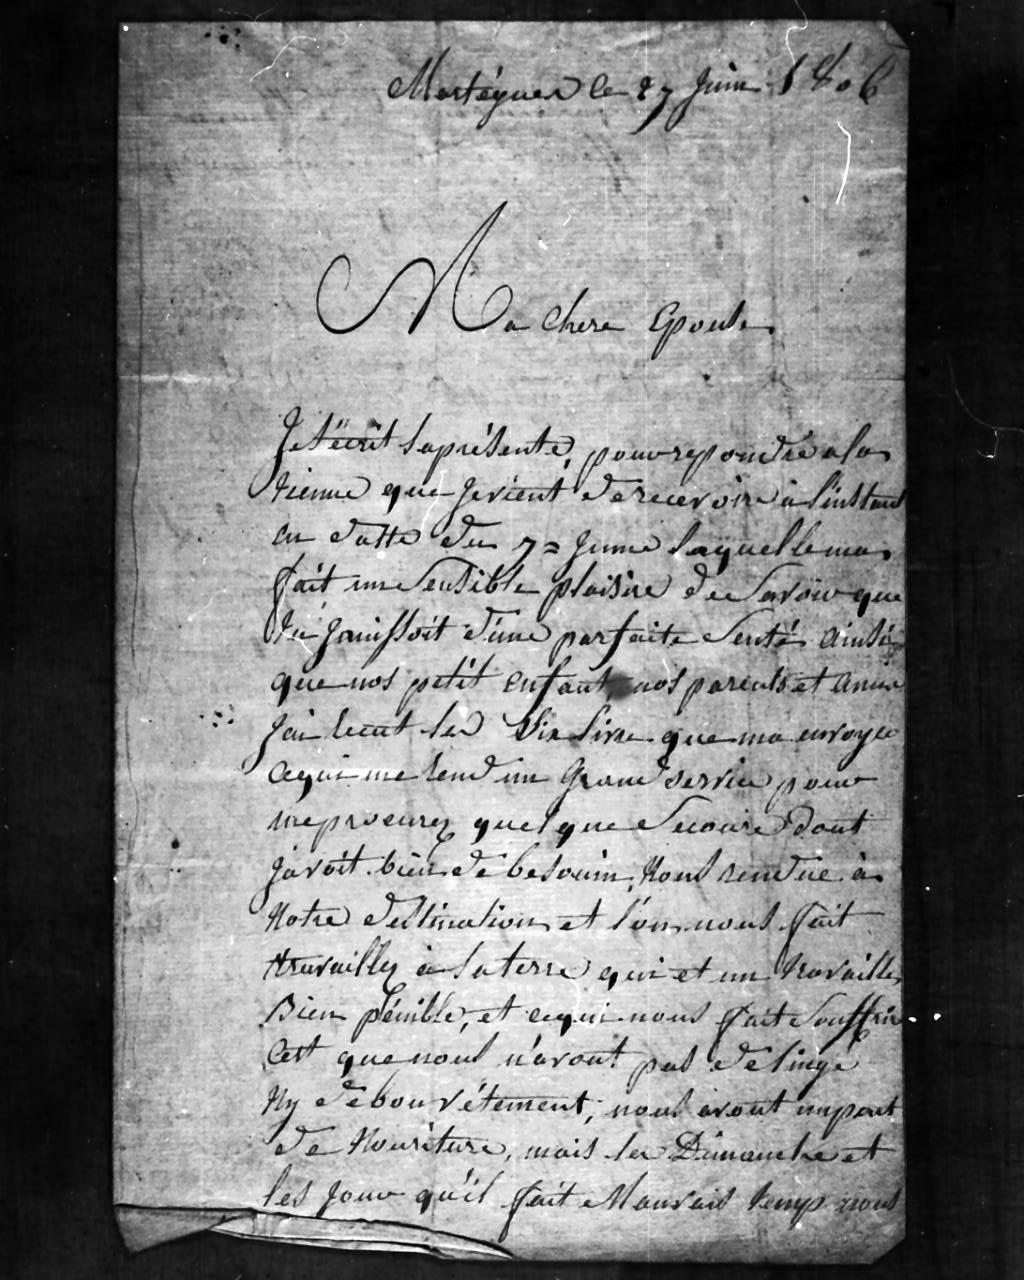 le 27 Juin 1806
Ma chere Epouse
Je t'écrit la présente, pour repondre a la
tienne que je vient de recevoire à l'instant
en datte du 7= Juine laquelle ma
fait un sensible plaisire de savoir que
tu jouissoit d'une parfaite senté ainsi
que nos petit enfant, nos parents et amis
J'ai recut les six livre que ma envoyee
ce qui me rend un Grand service pour
me procurez quelque secoure dont
j'avoit bien de besouin, Nous rendue à
Notre destination et l'on nous fait
travaillez à la terre qui et un travaille
Bien pénible, et ce qui nous fait souffrire
Cest que nous n'avont pas de linge
Ny de bon vétement, nous avont
de Nouriture, mais les Dimanche et
les Jour qu'il fait Mauvais temps nous